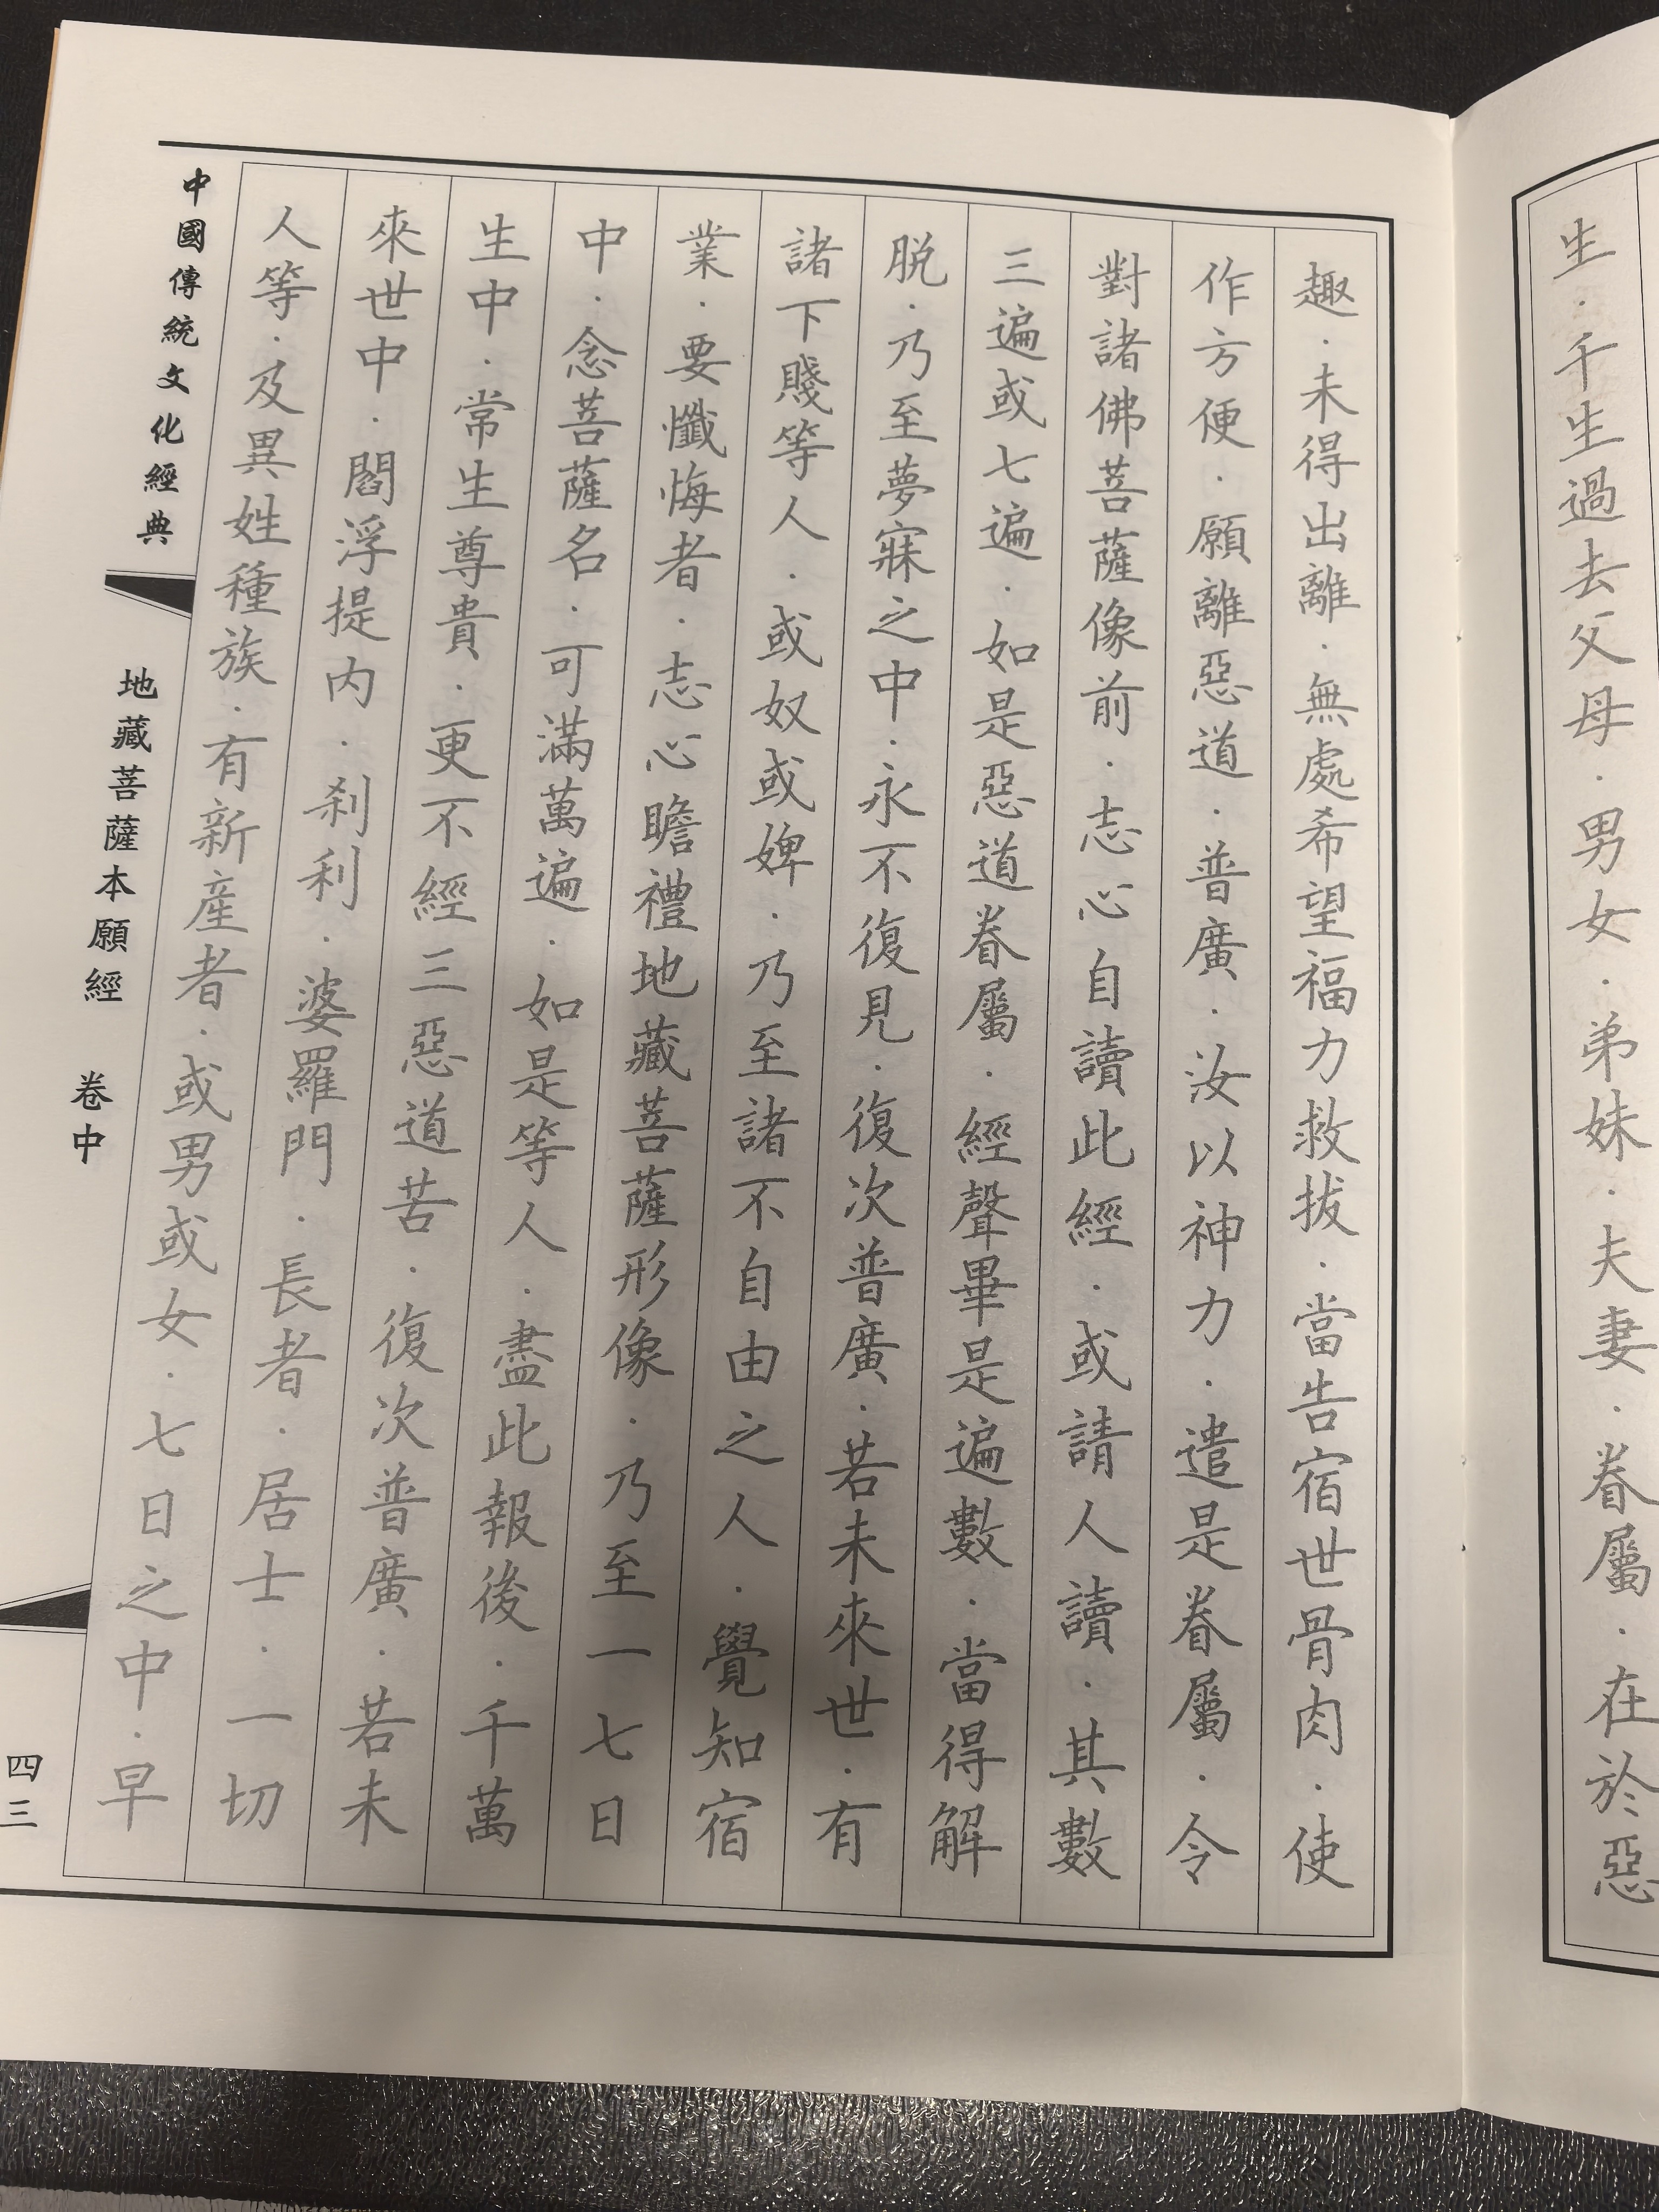 生．千生過去父母．男女．弟妹．夫妻．眷屬．在於惡
趣．未得出離．無處希望福力救拔．當告宿世骨肉．使
作方便．願離惡道．普廣．汝以神力．遣是眷屬．令
對諸佛菩薩像前．志心自讀此經．或請人讀．其數
三遍或七遍．如是惡道眷屬．經聲畢是遍數．當得解
脫．乃至夢寐之中．永不復見．復次普廣．若未來世．有
諸下賤等人．或奴或婢．乃至諸不自由之人．覺知宿
業．要懺悔者．志心瞻禮地藏菩薩形像．乃至一七日
中．念菩薩名．可滿萬遍．如是等人．盡此報後．千萬
生中．常生尊貴．更不經三惡道苦．復次普廣．若未
來世中．閻浮提內．剎利．婆羅門．長者．居士．一切
人等．及異姓種族．有新產者．或男或女．七日之中．早
中國傳統文化經典
地藏菩薩本願經 卷中
四三